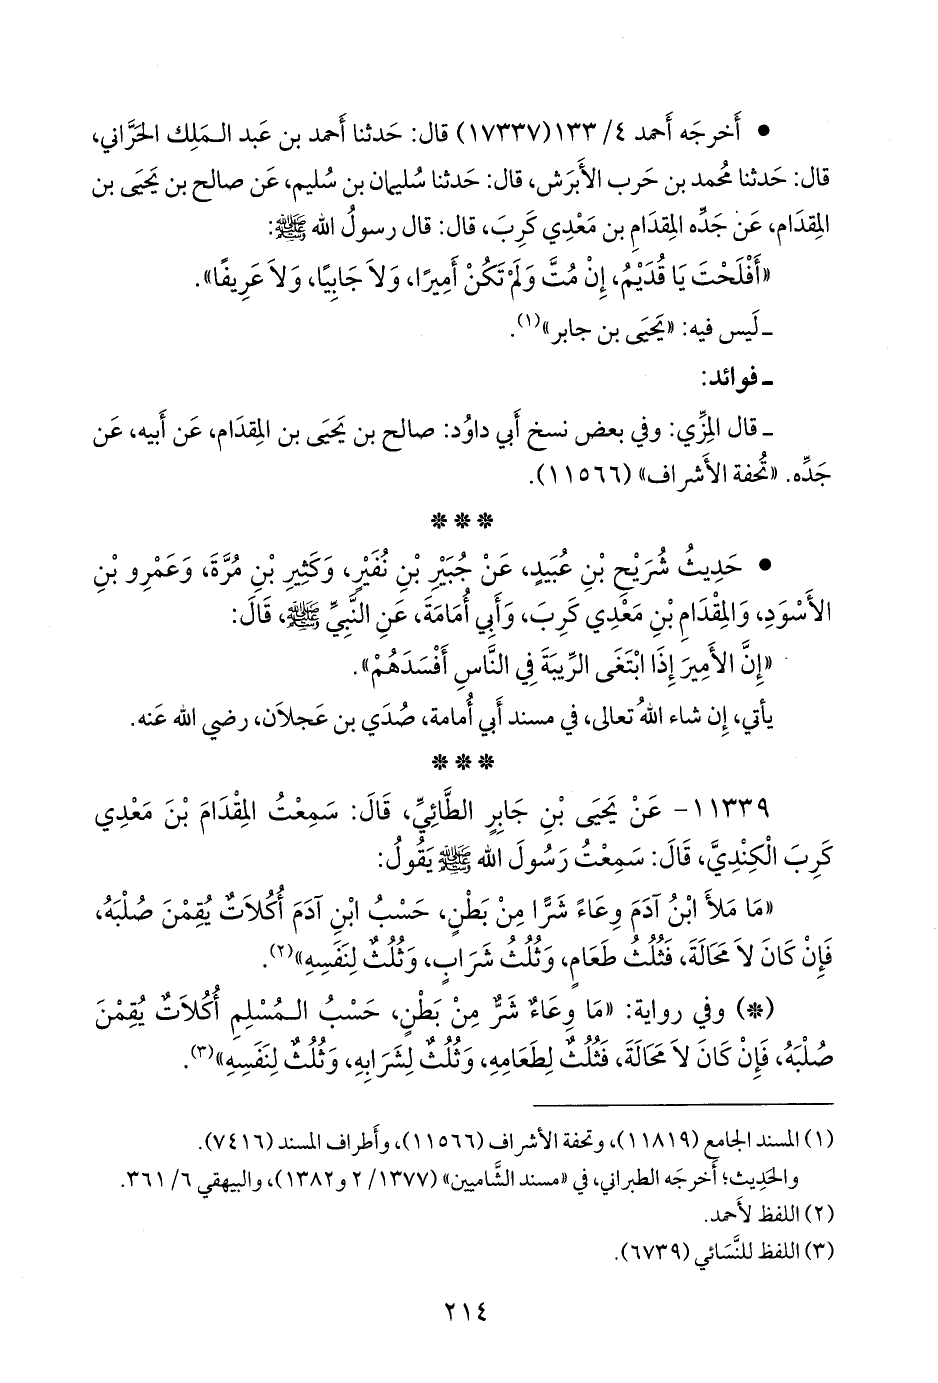 • أَخرجَه أَحمد ٤/ ١٣٣(١٧٣٣٧) قال: حَدثنا أَحمد بن عَبد الـمَلِك الحَرَّاني،
قال: حَدثنا مُحمد بن حَرب الأَبرَش، قال: حَدثنا سُليمان بن سُليم، عَن صالح بن يَحيَى بن
المِقدَام، عَن جَدِّه المِقدَامِ بن مَعْدِي كَرِبَ، قال: قال رسولُ الله ﷺ:
«أَفْلَحْتَ يَا قُدَيْمُ، إِنْ مُتَّ وَلَمْ تَكُنْ أَمِيرًا، وَلاَ جَابِيًا، وَلاَ عَرِيفًا».
ـ لَيس فيه: «يَحيَى بن جابر»(١).
ـ فوائد:
ـ قال المِزِّي: وفي بعض نسخ أَبي داوُد: صالح بن يَحيَى بن المِقدَام، عَن أَبيه، عَن
جَدِّه. «تُحفة الأَشراف» (١١٥٦٦).
* * *
• حَدِيثُ شُرَيْحِ بْنِ عُبَيدٍ، عَنْ جُبَيْرِ بْنِ نُفَيْرٍ، وَكَثِيرِ بْنِ مُرَّةَ، وَعَمْرِو بْنِ
الأَسْوَدِ، وَالمِقْدَامِ بْنِ مَعْدِي كَرِبَ، وَأَبِي أُمَامَةَ، عَنِ النَّبِيِّ ﷺ، قَالَ:
«إِنَّ الأَمِيرَ إِذَا ابْتَغَى الرِّيبَةَ فِي النَّاسِ أَفْسَدَهُمْ».
يأتي، إِن شاء اللهُ تعالى، في مسند أَبي أُمامة، صُدَي بن عَجلاَن، رضي الله عَنه.
* * *
١١٣٣٩- عَنْ يَحيَى بْنِ جَابِرٍ الطَّائِيِّ، قَالَ: سَمِعْتُ المِقْدَامَ بْنَ مَعْدِي
كَرِبَ الْكِنْدِيَّ، قَالَ: سَمِعْتُ رَسُولَ الله ﷺ يَقُولُ:
«مَا مَلأَ ابْنُ آدَمَ وِعَاءً شَرًّا مِنْ بَطْنٍ، حَسْبُ ابْنِ آدَمَ أُكُلاَتٌ يُقِمْنَ صُلْبَهُ،
فَإِنْ كَانَ لاَ مَحَالَةَ، فَثُلُثُ طَعَامٍ، وَثُلُثُ شَرَابٍ، وَثُلُثٌ لِنَفَسِهِ»(٢).
(*) وفي رواية: «مَا وِعَاءٌ شَرٌّ مِنْ بَطْنٍ، حَسْبُ الـمُسْلِمِ أُكُلاَتٌ يُقِمْنَ
صُلْبَهُ، فَإِنْ كَانَ لاَ مَحَالَةَ، فَثُلُثٌ لِطَعَامِهِ، وَثُلُثٌ لِشَرَابِهِ، وَثُلُثٌ لِنَفَسِهِ»(٣).
(١) المسند الجامع (١١٨١٩)، وتحفة الأشراف (١١٥٦٦)، وأطراف المسند (٧٤١٦).
والحَدِيث؛ أَخرجَه الطبراني، في «مسند الشَّاميين» (١٣٧٧/ ٢ و١٣٨٢)، والبيهقي ٦/ ٣٦١.
(٢) اللفظ لأَحمد.
(٣) اللفظ للنَّسَائي (٦٧٣٩).
٢١٤